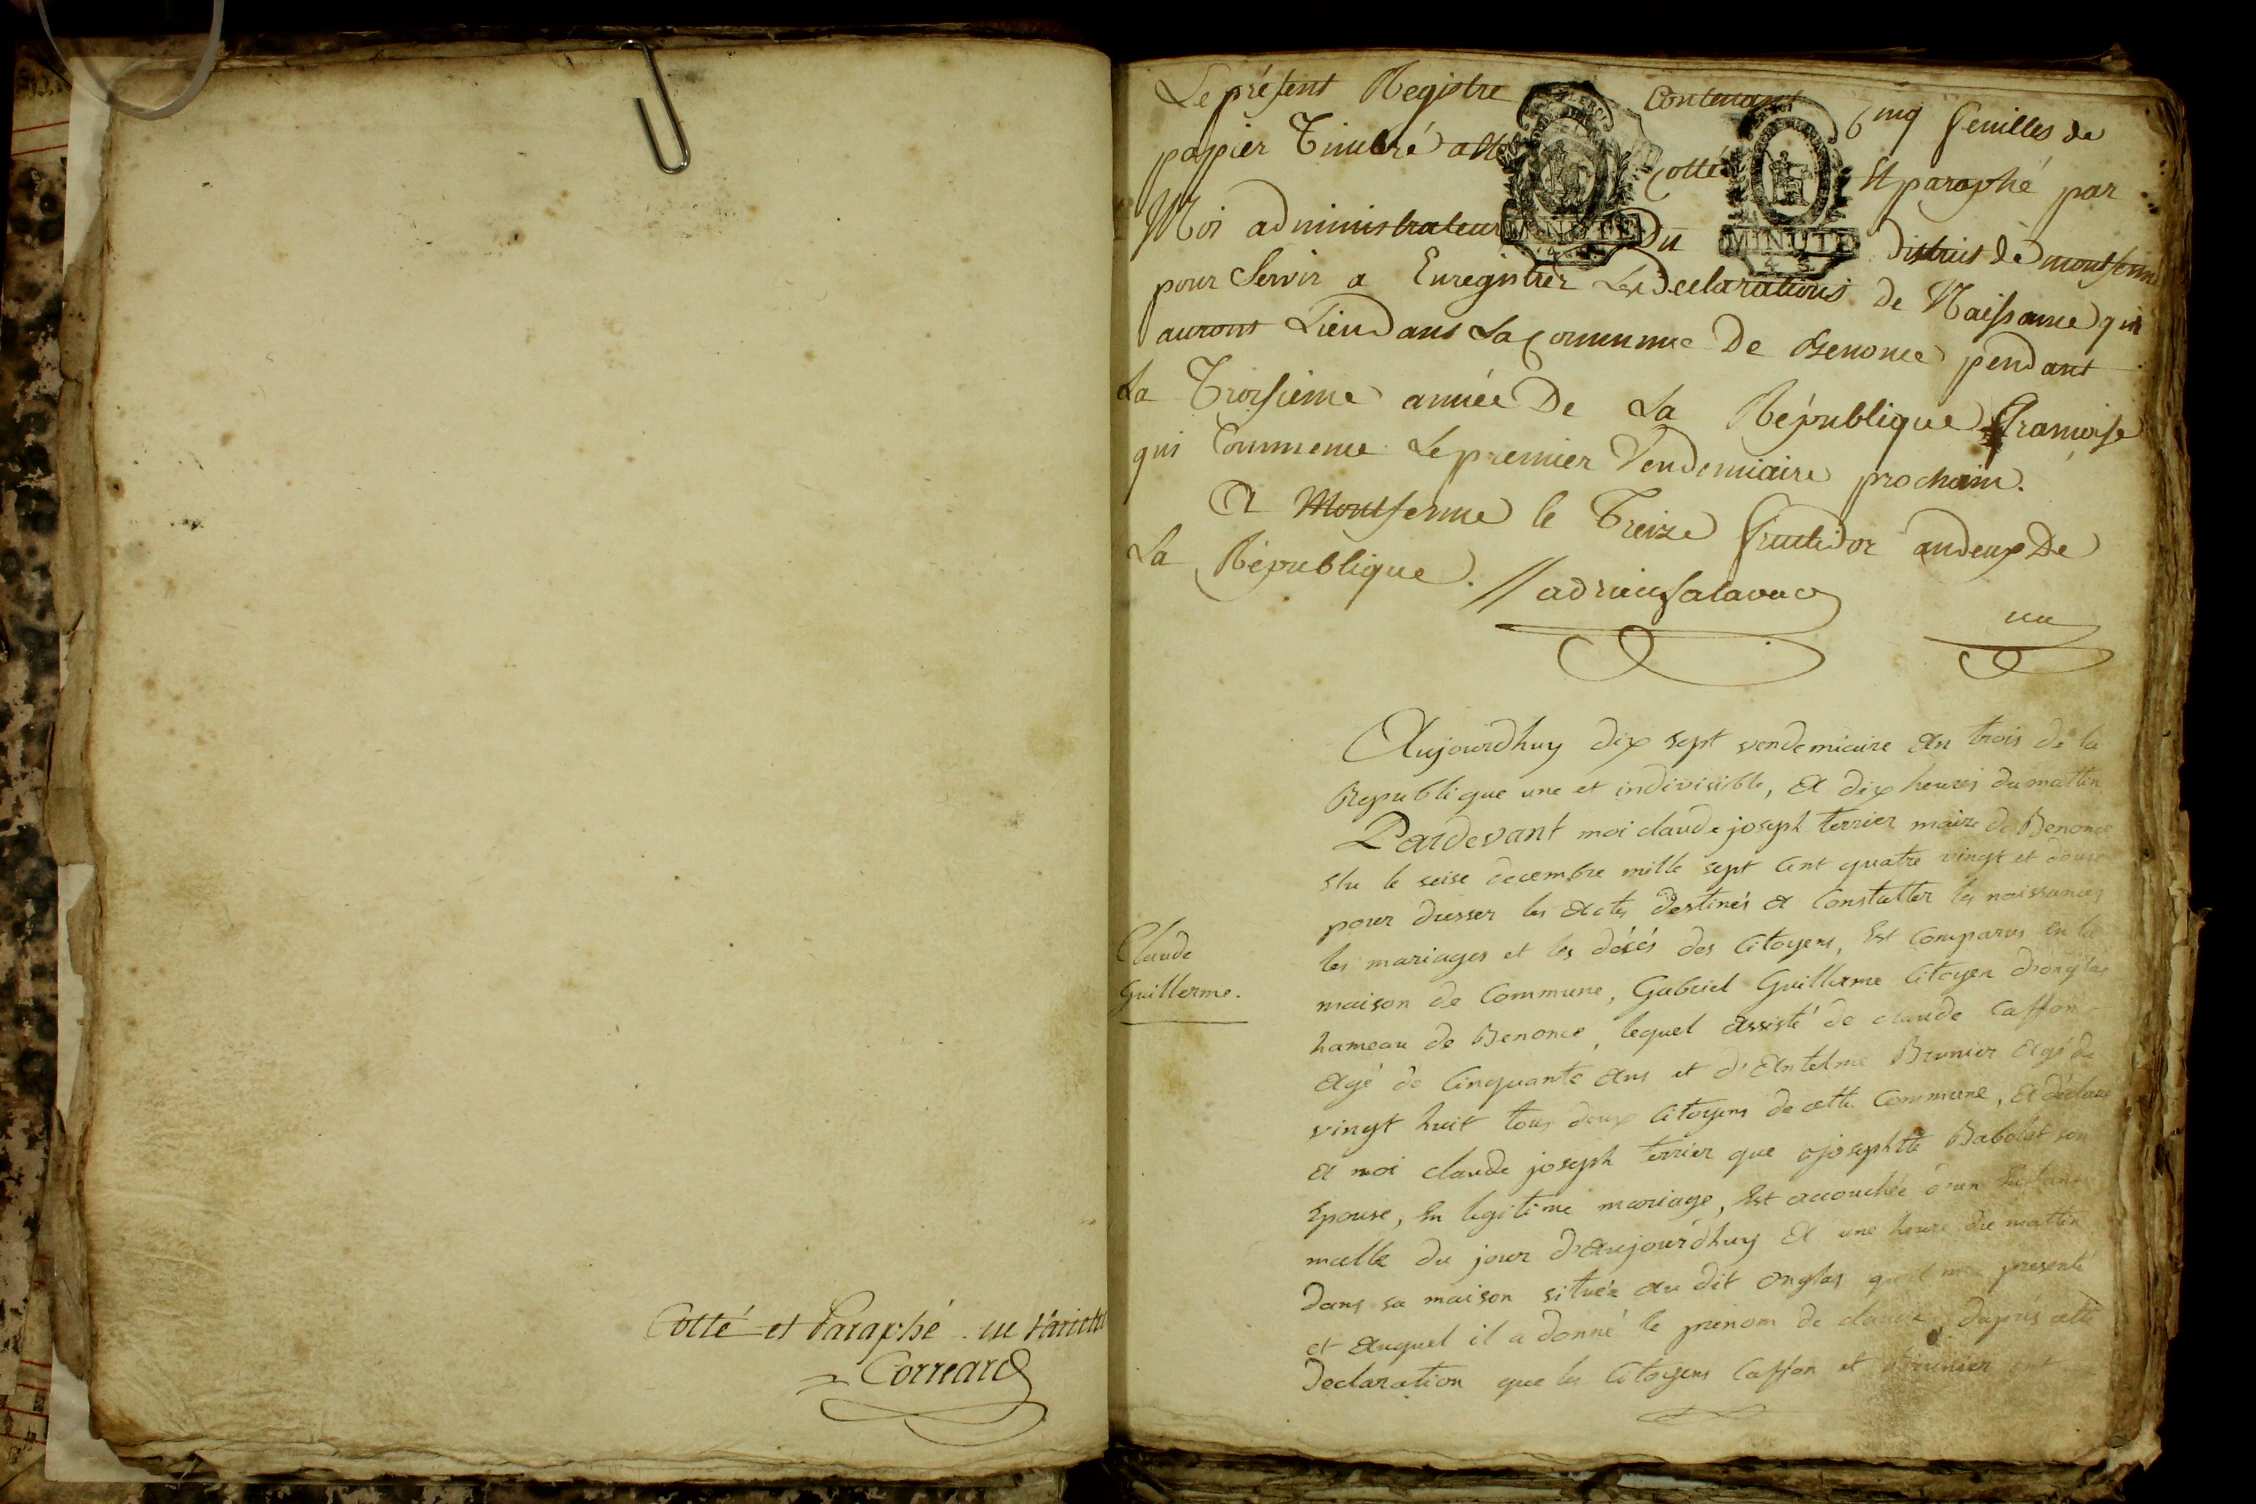 Cotté et Paraphé
Correard
Le présent Registre Contenant Cinq feuilles de
papier Timbré a été cotté Et paraphé par
Moi administrateur Du District de montferme
pour Servir a Enregistrer Les declarations de Naissance qui
auront Lieu dans La Commune De Benonce pendant
La Troisieme année De La République françoise
qui Commence Le premier Vendemiaire prochain.
A Montferme le Treize fructidor an deux De
La République.
un
MINUTE
MINUTE
Aujourdhuy dix sept vendemiaire an trois de la
Republique une et indivisible, a dix heures du mattin
Pardevant moi claude joseph terrier maire de Benonce
elu le seise decembre mille sept Cent quatre vingt et douse
pour dresser les actes destinés a Constatter les naissances
les mariages et les décés des Citoyens, Est Comparus en la
maison de Commune, Gabriel Guillerme Citoyen d'onglas
hameau de Benonce, lequel assisté de claude Caffon
Claude
Guillerme.
agé de Cinquante ans et d'Antelme Brunier agé de
vingt huit tous deux Citoyens de cette Commune, a déclaré
a moi claude joseph terrier que josephte Babolat son
Epouse, En legitime mariage, Est accouchée d'un Enfant
malle du jour d'aujourdhuy a une heure du mattin
dans sa maison située au dit onglas qu'il ma presenté
et auquel il a donné le prenom de claude, daprés cette
declaration que les Citoyens Caffon et Brunier ont